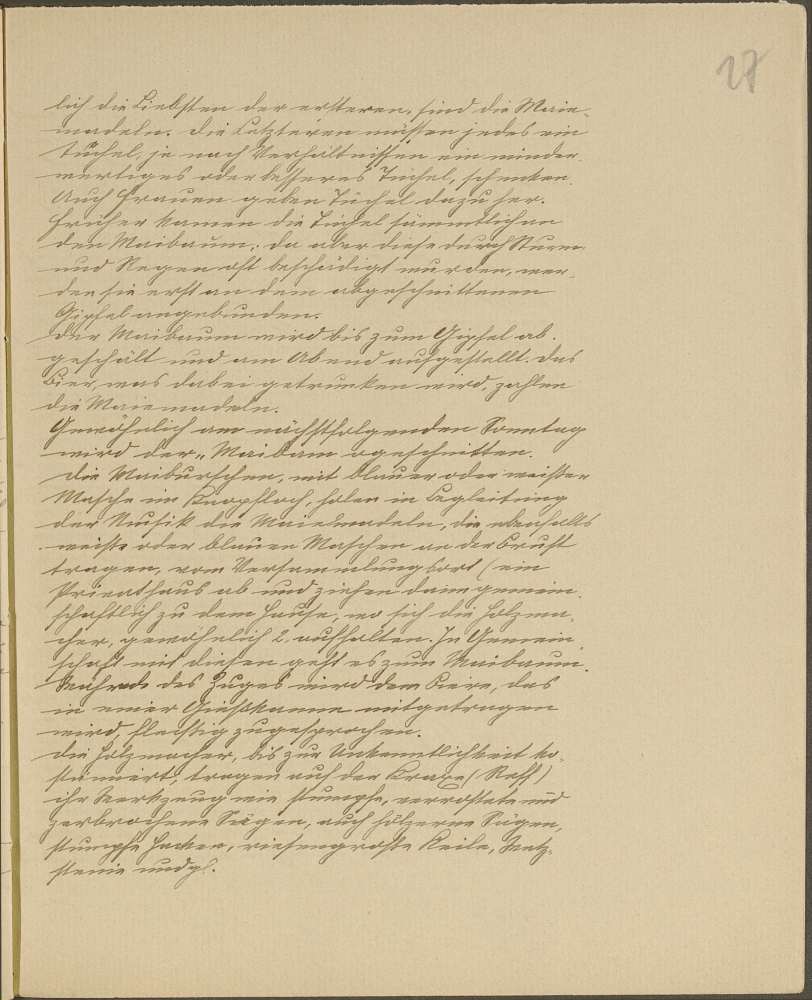 27
lich die Liebsten der ersteren, sind die Maie-
madeln. Die Letzteren müssen jedes ein
Tüchel, je nach Verhältnissen ein minder
wertiges oder besseres Tüchel, schenken.
Auch Frauen geben Tüchel dazu her.
Früher kamen die Tüchel sämmtlich an
den Maibaum; da aber diese durch Sturm
und Regen oft beschädigt wurden, wer-
den sie erst an dem abgeschnittenen
Gipfel angebunden.
Der Maibaum wird bis zum Gipfel ab-
geschält und am Abend aufgestellt. Das
Bier, was dabei getrunken wird, zahlen
die Maiemadeln.
Gewöhnlich am nächstfolgenden Sonntag
wird der „Maibam ogeschnitten.
Die Maiburschen, mit blauer oder weisser
Masche im Knopfloch, holen in Begleitung
der Musik die Maiemadeln, die ebenfalls
weisse oder blauen Maschen an der Brust
tragen, vom Versammlungsort (ein
Privathaus ab und ziehen dann gemein-
schaftlich zu dem Hause, wo sich die Holzma-
cher, gewöhnlich 2, aufhalten. In Gemein-
schaft mit diesen geht es zum Maibaum.
Während des Zuges wird dem Biere, das
in einer Gießkanne mitgetragen
wird, fleissig zugesprochen.
Die Holzmacher, bis zur Unkenntlichkeit ko-
stümiert, tragen auf der Kraxe (Reff)
ihr Werkzeug wie stumpfe, verrostete und
zerbrochene Sägen, auch hölzerne Sägen,
stumpfe Hacken, riesengroße Keile, Wetz-
steine und gl.